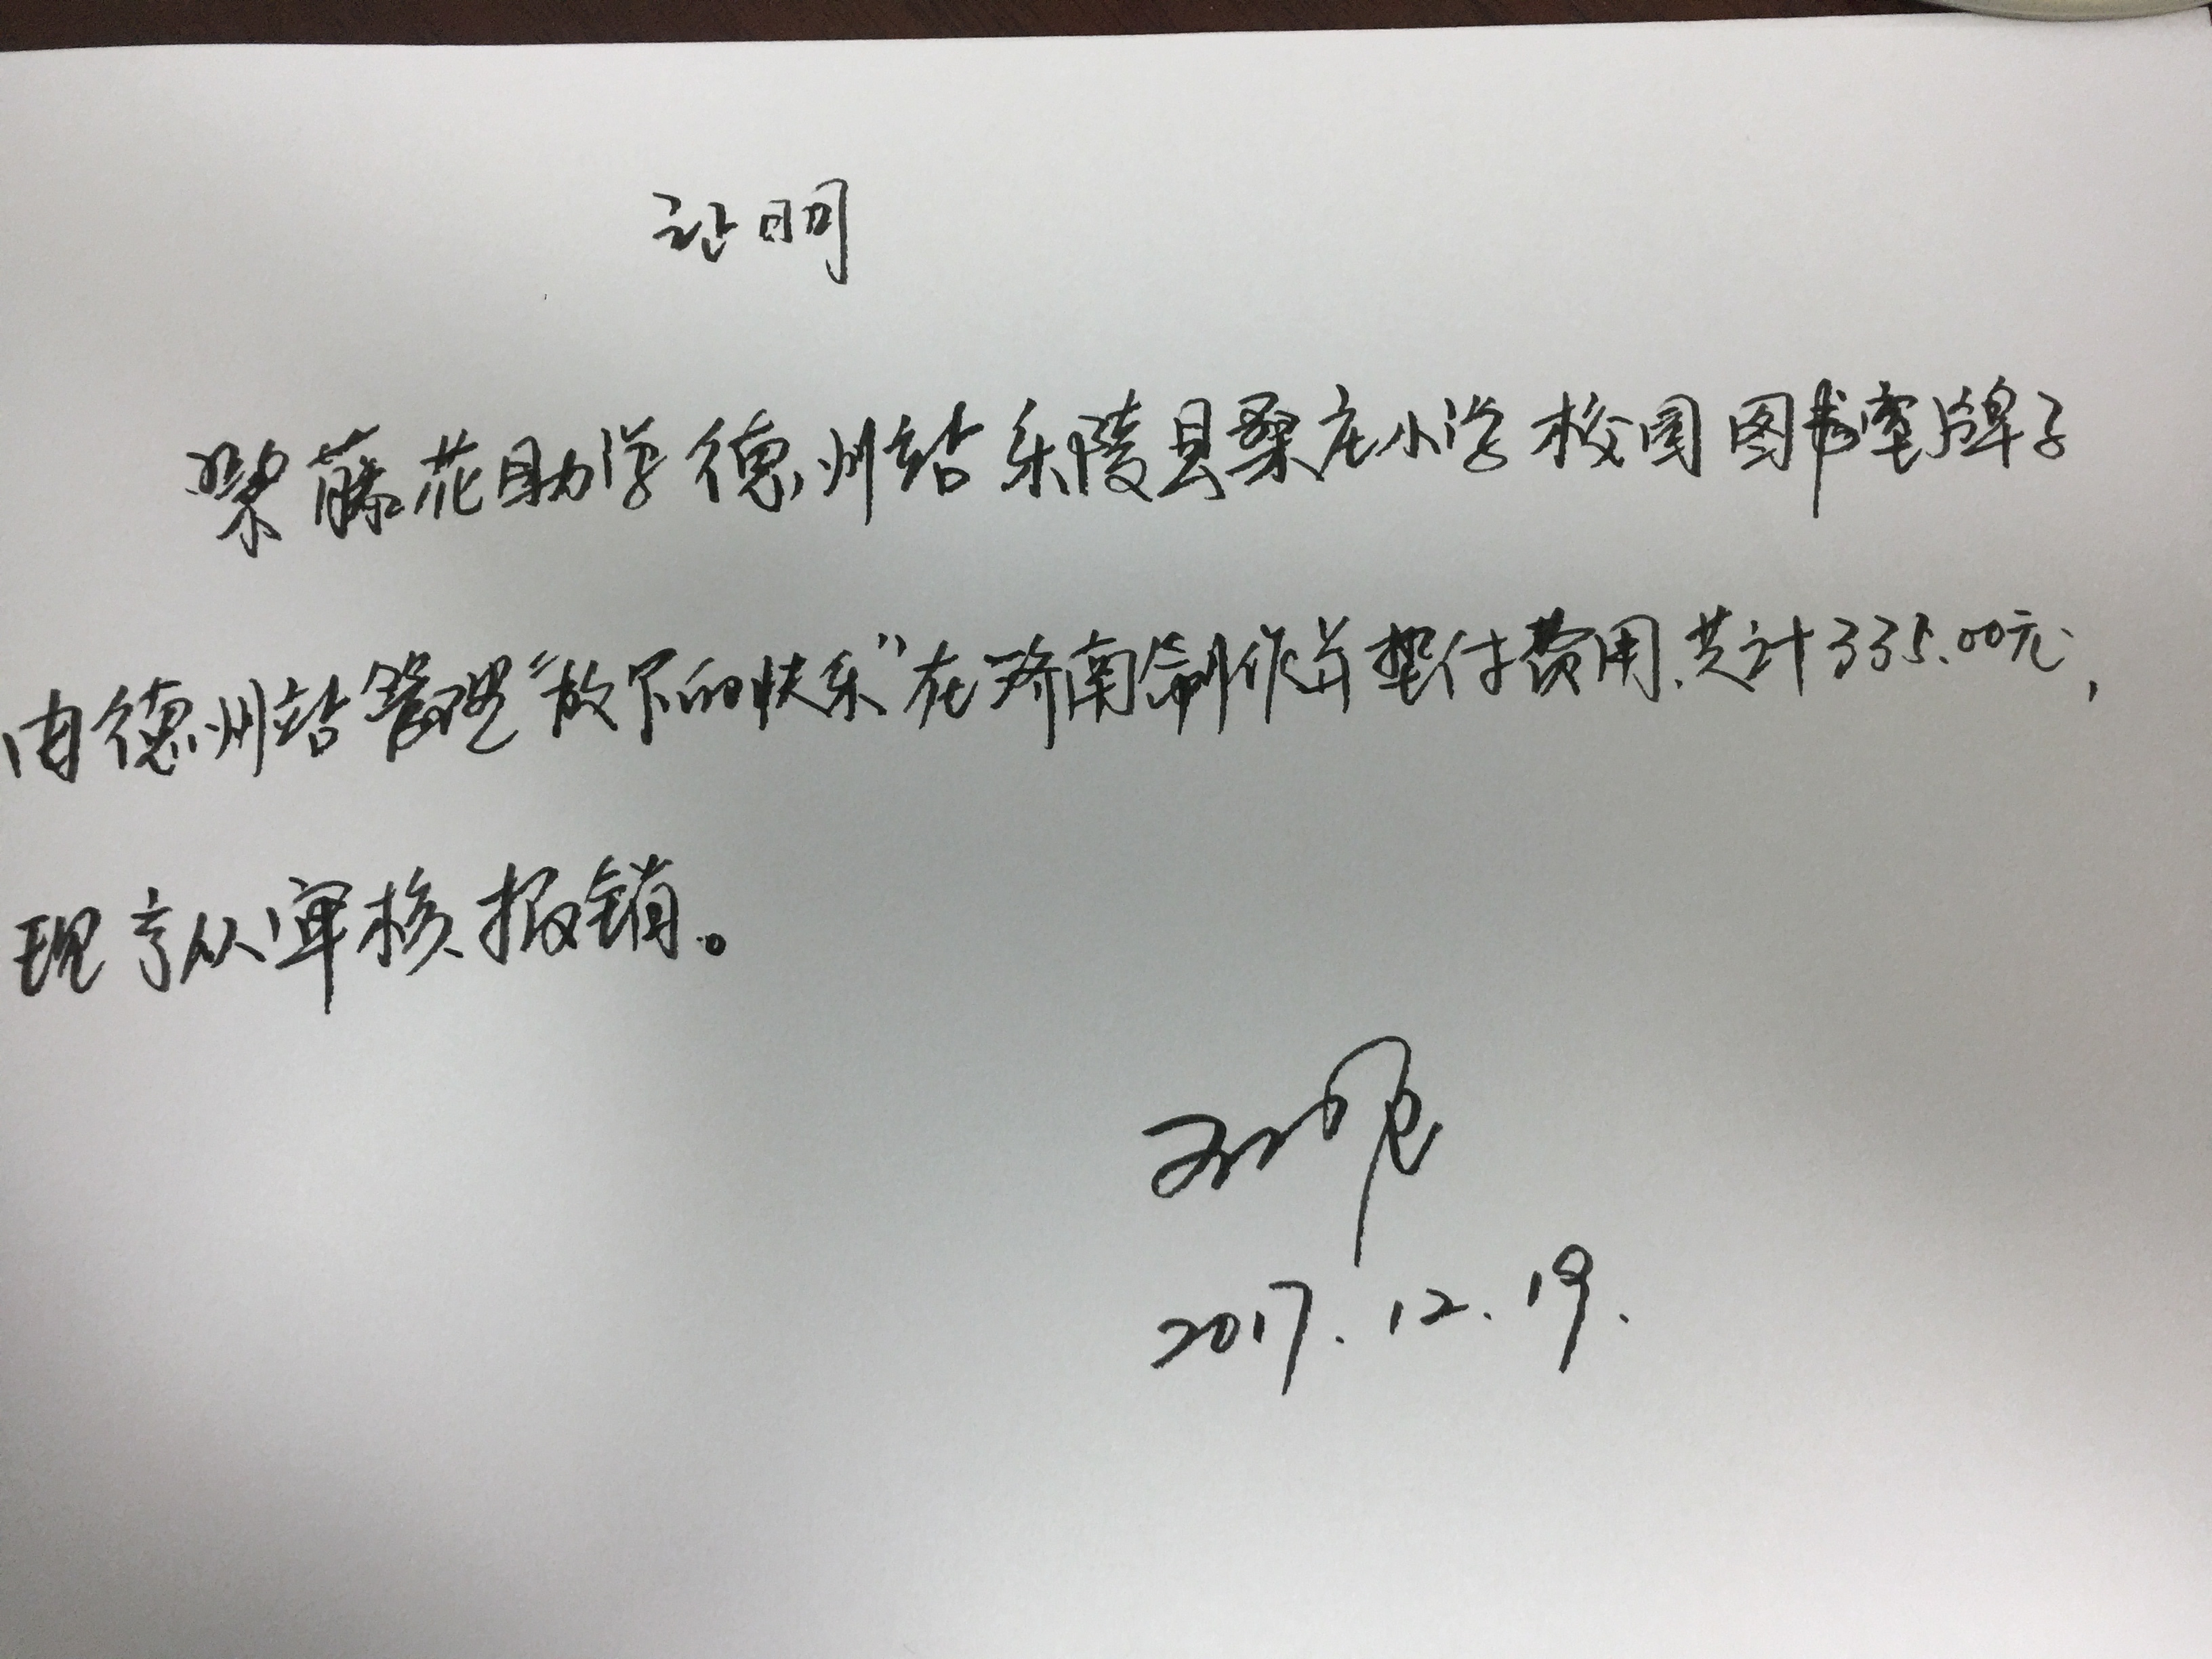 证明
紫藤花助学德州站乐陵县桑庄小学校园图书室牌子
由德州站管理“放下的快乐”在济南制作并垫付费用.共计335.00元,
现予以审核报销。
2017.12.19.